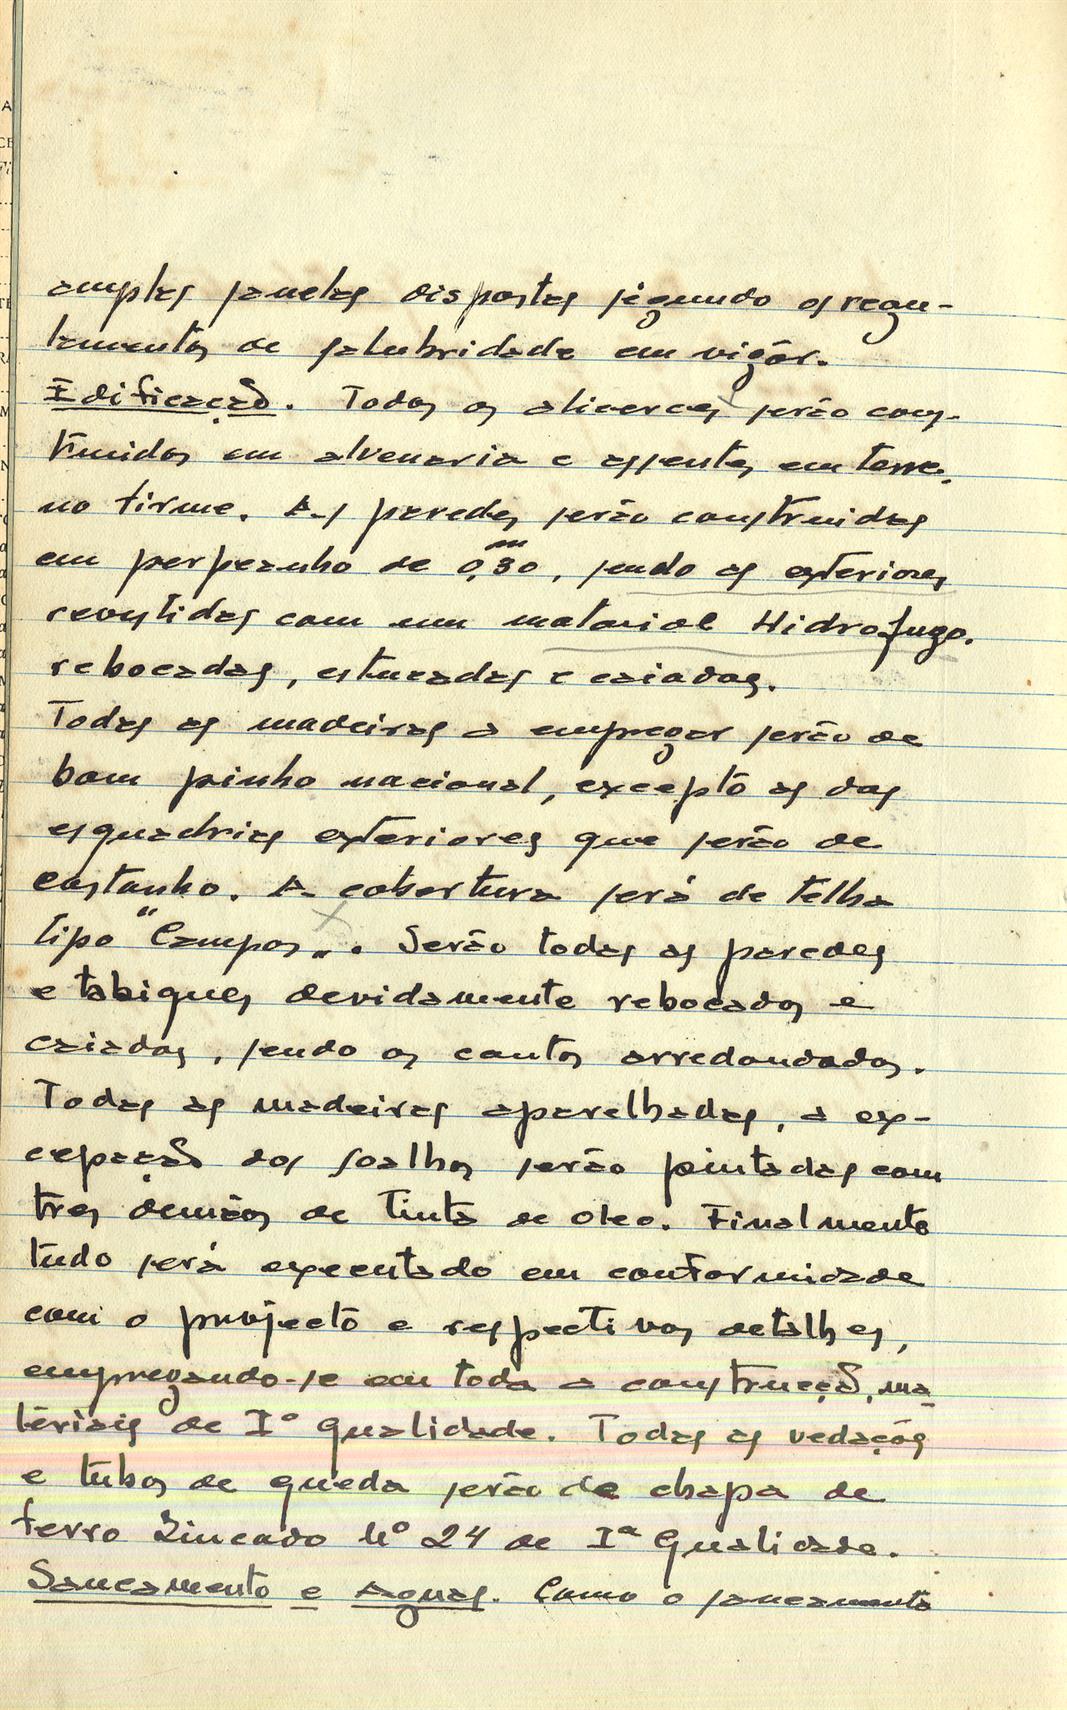 amplas janelas dispostas segundo os regu-
lamentos de salubridade em vigôr.
Edificação. Todos os alicerces serão cons-
truidos em alvenaria e assentes em terre-
no firme. As paredes serão construidas
em perpeanho de 0,30 m, sendo as exteriores
revestidas com um material Hidrofugo.
rebocadas, estucadas e caiadas.
Todas as madeiras a empregar serão de
bom pinho nacional, excepto as das
esquadrias exteriores que serão de
castanho. A cobertura será de telha
tipo "Campos". Serão todas as paredes
e tabiques devidamente rebocados e
caiados, sendo os cantos arredondados.
Todas as madeiras aparelhadas, a ex-
cepção dos soalhos serão pintadas com
tres demãos de tinta de oleo. Finalmente
tudo será executado em conformidade
com o projecto e respectivos detalhes,
empregando-se em toda a construcção, ma-
tériais de Iª qualidade. Todas as vedações
e tubos de queda serão de chapa de
ferro Zincado Nº 24 de Iª Qualidade.
Saneamento e Aguas. Como o saneamento